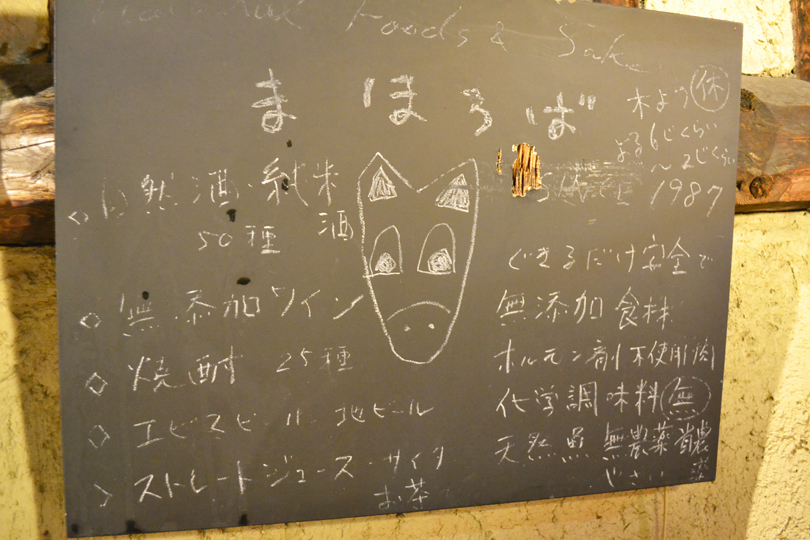 Natural Foods & Sake
まほろば
木よう休
よる6じくらい
～2じくらい
SINCE 1987
◇自然酒・純米酒
50種
◇無添加ワイン
◇焼酎 25種
◇エビスビール・地ビール
◇ストレートジュース・サイダ
お茶
できるだけ安全で
無添加食材
ホルモン剤不使用肉
化学調味料無
天然魚 無農薬 省農薬
じさい